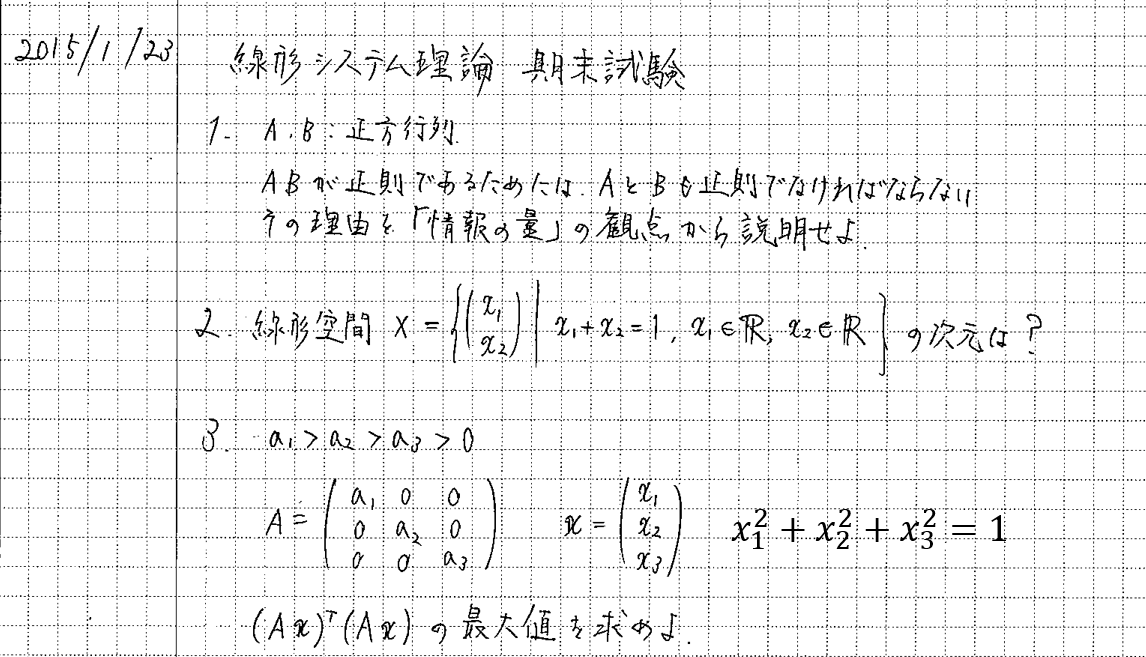 2015/1/23
線形システム理論 期末試験
1. A, B : 正方行列.
ABが正則であるためには、AとBも正則でなければならない
その理由を「情報の量」の観点から説明せよ.
2. 線形空間 X = { (x₁ x₂) | x₁+x₂=1, x₁∈ℝ, x₂∈ℝ } の次元は?
3. a₁ > a₂ > a₃ > 0
A = (a₁ 0 0 / 0 a₂ 0 / 0 0 a₃) x = (x₁ x₂ x₃) x₁² + x₂² + x₃² = 1
(Ax)ᵀ(Ax) の最大値を求めよ.